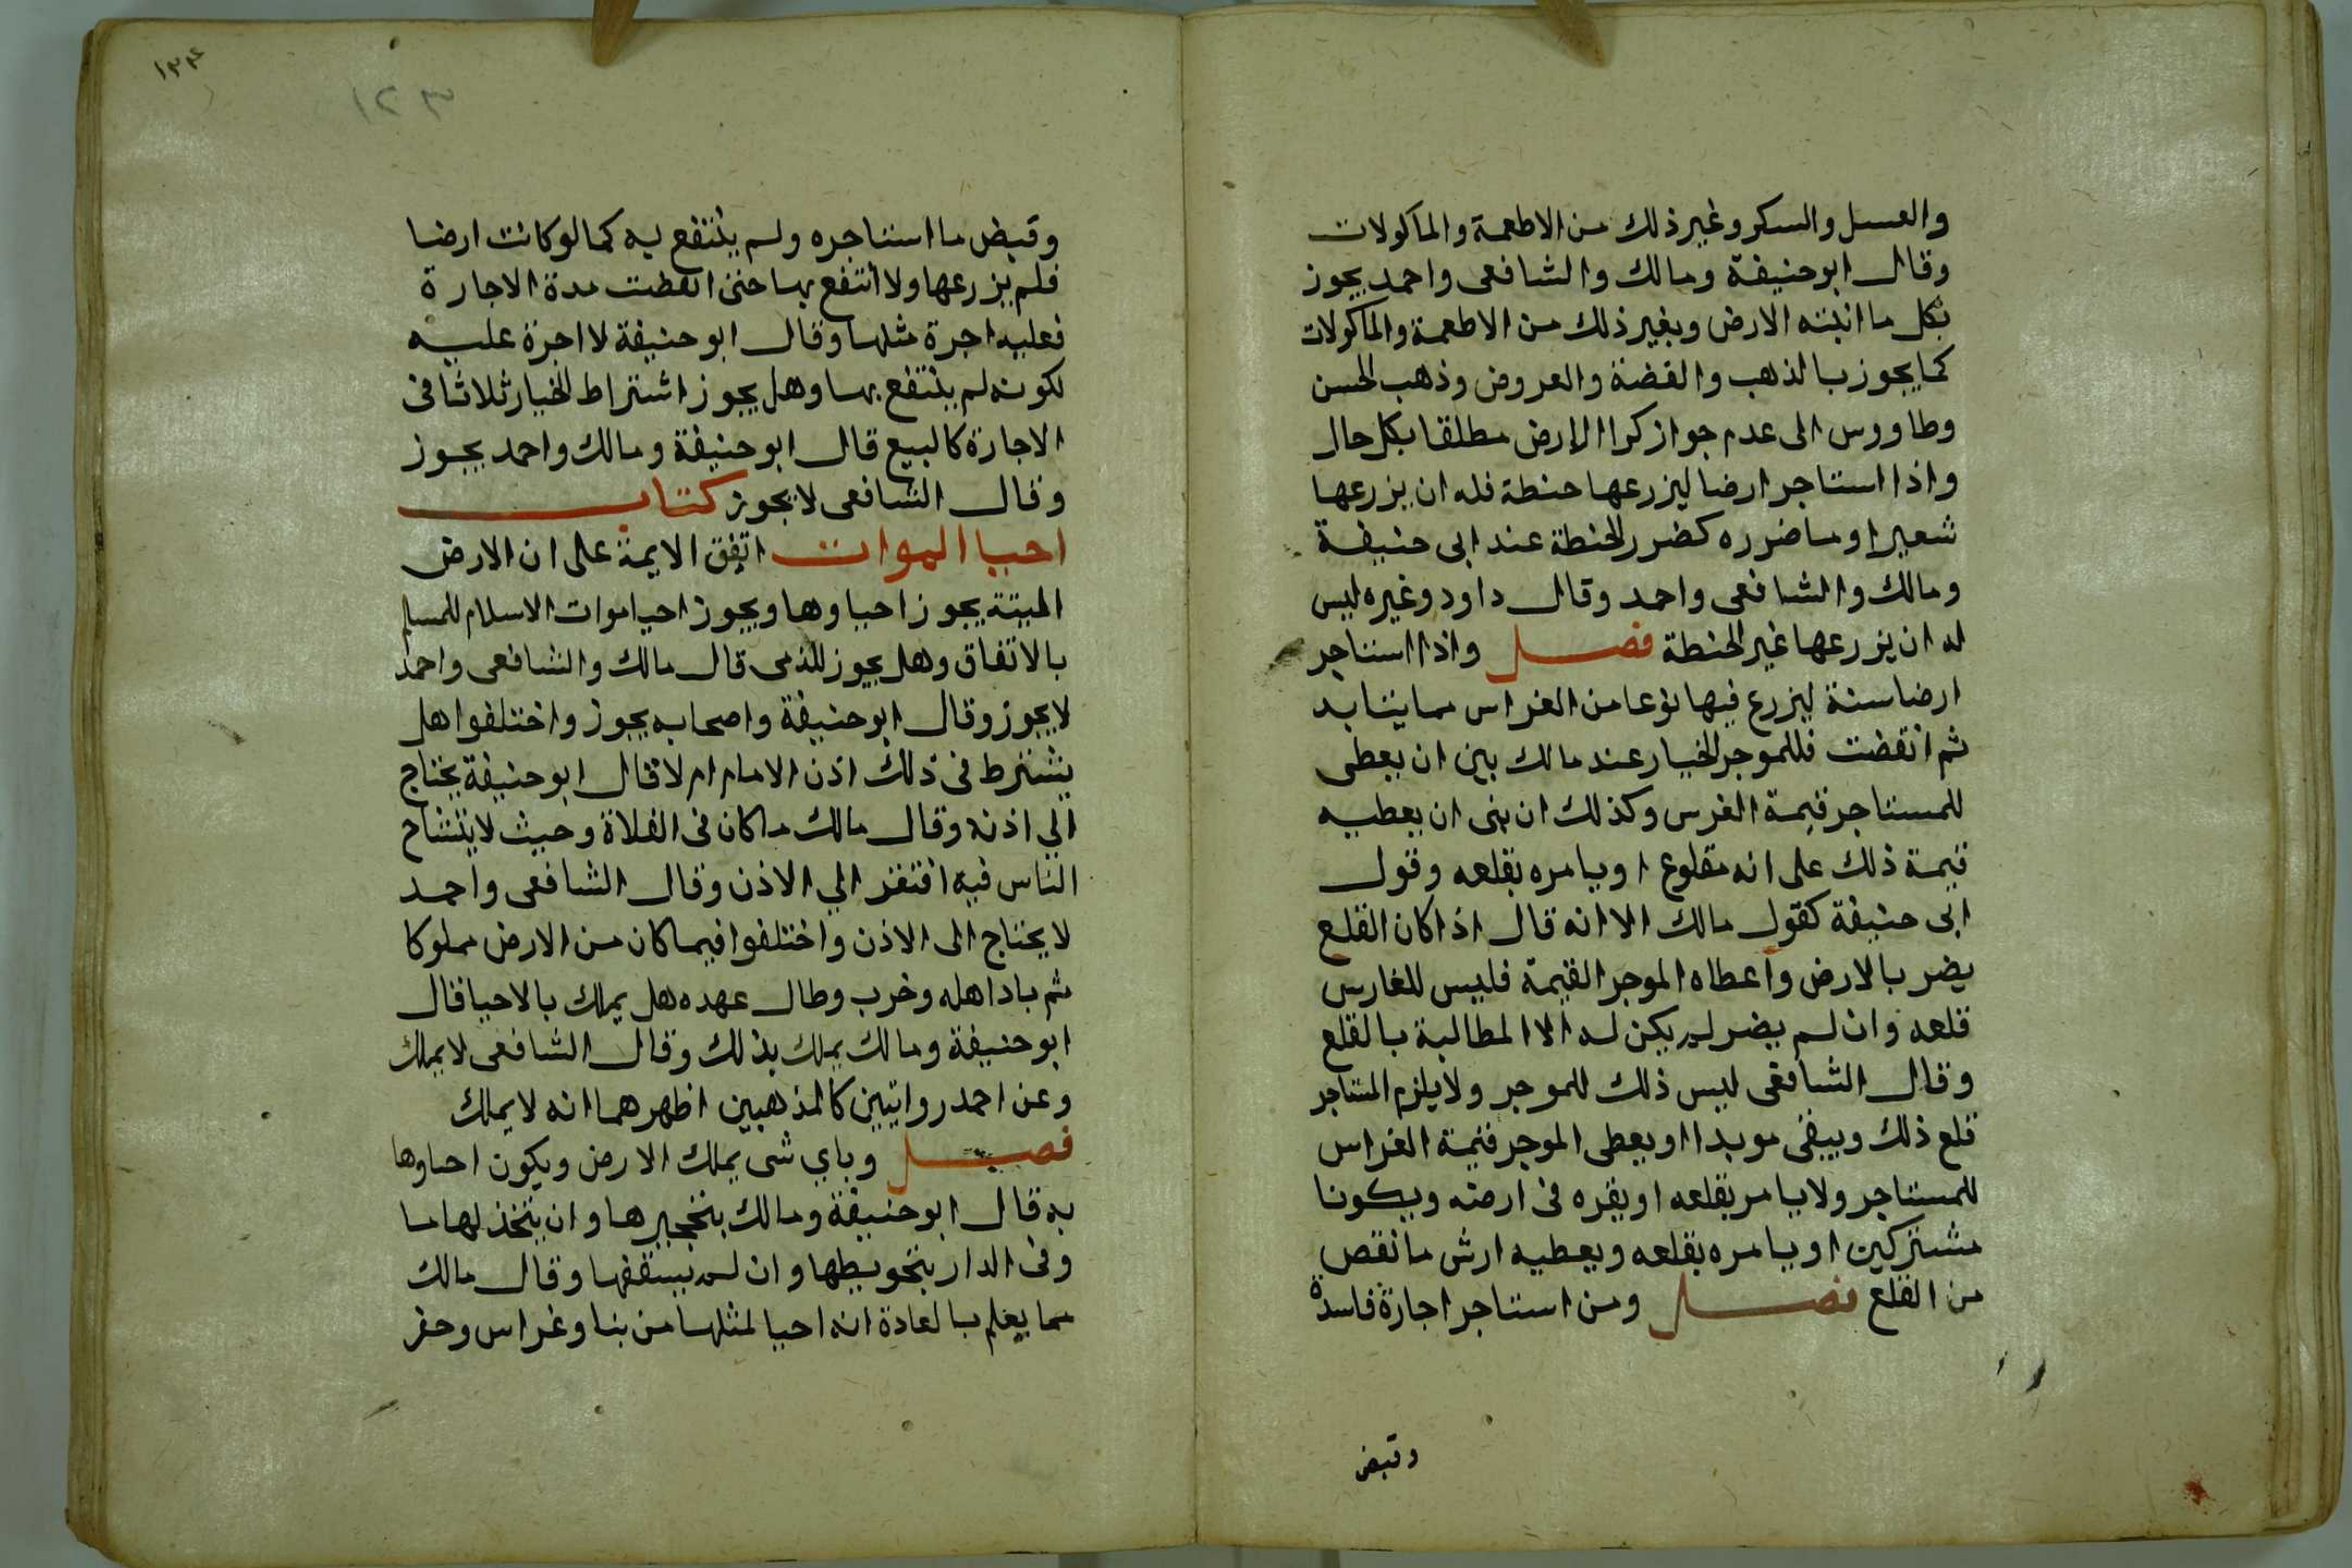 والعسل والسكر وغير ذلك من الاطعمة والماكولات
وقال ابو حنيفة ومالك والشافعى واحمد يجوز
بكل ما انبته الارض وبغير ذلك من الاطعمة والماكولات
كما يجوز بالذهب والفضة والعروض وذهب الحسن
وطاووس الى عدم جواز كرا الارض مطلقا بكل حال
واذا استاجر ارضا ليزرعها حنطة فله ان يزرعها
شعيرا وما ضرره كضرر الحنطة عند ابى حنيفة
ومالك والشافعى واحمد وقال داود وغيره ليس
له ان يزرعها غير الحنطة فصل واذا استاجر
ارضا سنة ليزرع فيها نوعا من الغراس مما يتابد
ثم انقضت فللموجر الخيار عند مالك بين ان يعطى
للمستاجر قيمة الغرس وكذلك ان بنى ان يعطيه
قيمة ذلك على انه مقلوع او يامره بقلعه وقول
ابى حنيفة كقول مالك الا انه قال اذا كان القلع
يضر بالارض واعطاه الموجر القيمة فليس للغارس
قلعه وان لم يضر لم يكن له الا المطالبة بالقلع
وقال الشافعى ليس ذلك للموجر ولا يلزم المستاجر
قلع ذلك ويبقى موبدا او يعطى الموجر قيمة الغراس
للمستاجر ولا يامر بقلعه او يقره فى ارضه ويكونا
مشتركين او يامره بقلعه ويعطيه ارش ما نقص
من القلع فصل ومن استاجر اجارة فاسدة
وقبض
١٣٤
١٢٣
وقبض ما استاجره ولم ينتفع به كما لو كانت ارضا
فلم يزرعها ولا انتفع بها حتى انقضت مدة الاجارة
فعليه اجرة مثلها وقال ابو حنيفة لا اجرة عليه
لكونه لم ينتفع بها وهل يجوز اشتراط الخيار ثلاثا فى
الاجارة كالبيع قال ابو حنيفة ومالك واحمد يجوز
وقال الشافعى لا يجوز كتاب
احيا الموات اتفق الايمة على ان الارض
الميتة يجوز احياوها ويجوز احيا موات الاسلام للمسلم
بالاتفاق وهل يجوز للذمى قال مالك والشافعى واحمد
لا يجوز وقال ابو حنيفة واصحابه يجوز واختلفوا هل
يشترط فى ذلك اذن الامام ام لا قال ابو حنيفة يحتاج
الي اذنه وقال مالك ما كان فى الفلاة وحيث لا يتشاح
الناس فيه افتقر الي الاذن وقال الشافعى واحمد
لا يحتاج الى الاذن واختلفوا فيما كان من الارض مملوكا
ثم باد اهله وخرب وطال عهده هل يملك بالاحيا قال
ابو حنيفة ومالك يملك بذلك وقال الشافعى لا يملك
وعن احمد روايتين كالمذهبين اظهرهما انه لا يملك
فصل وباي شى يملك الارض ويكون احياوها
به قال ابو حنيفة ومالك بتحجيرها وان يتخذ لها ما
وفى الدار بتحويطها وان لم يسقفها وقال مالك
مما يعلم بالعادة انه احيا لمثلها من بنا وغراس وحفر